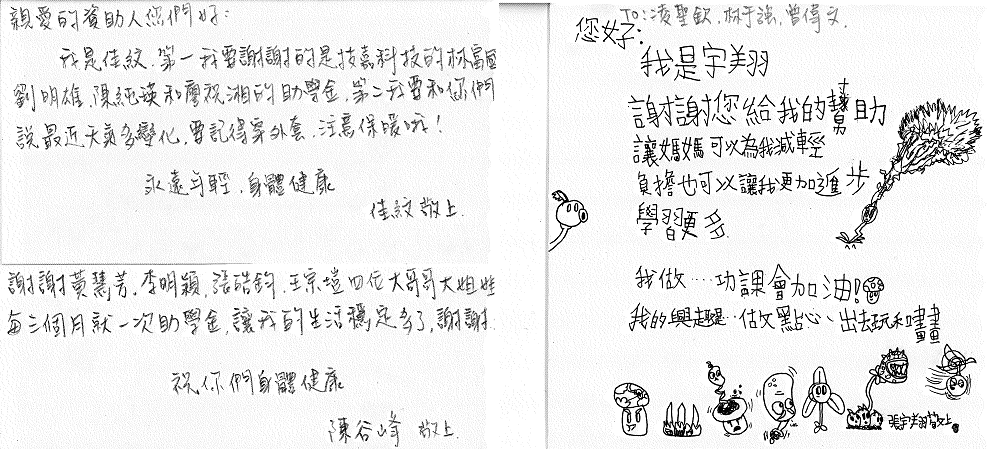 親愛的資助人您們好:
我是佳紋.第一我要謝謝的是技嘉科技的林富國
劉明雄、陳純瑛和廖祝湘的助學金,第二我要和你們
說最近天氣多變化,要記得穿外套、注意保暖哦!
永遠年輕.身體健康
佳紋 敬上.
謝謝黃慧芳.李明穎.張皓鈞.王宗塏四位大哥哥大姐姐
每三個月就一次助學金,讓我的生活穩定多了,謝謝.
祝你們身體健康
陳谷峰 敬上.
TO:凌聖欽.林于強.曾偉文.
您好:
我是宇翔
謝謝您給我的幫助
讓媽媽可以為我減輕
負擔也可以讓我更加進步
學習更多
我做…功課會加油!
我的興趣…做點心、出去玩和畫畫
張宇翔敬上